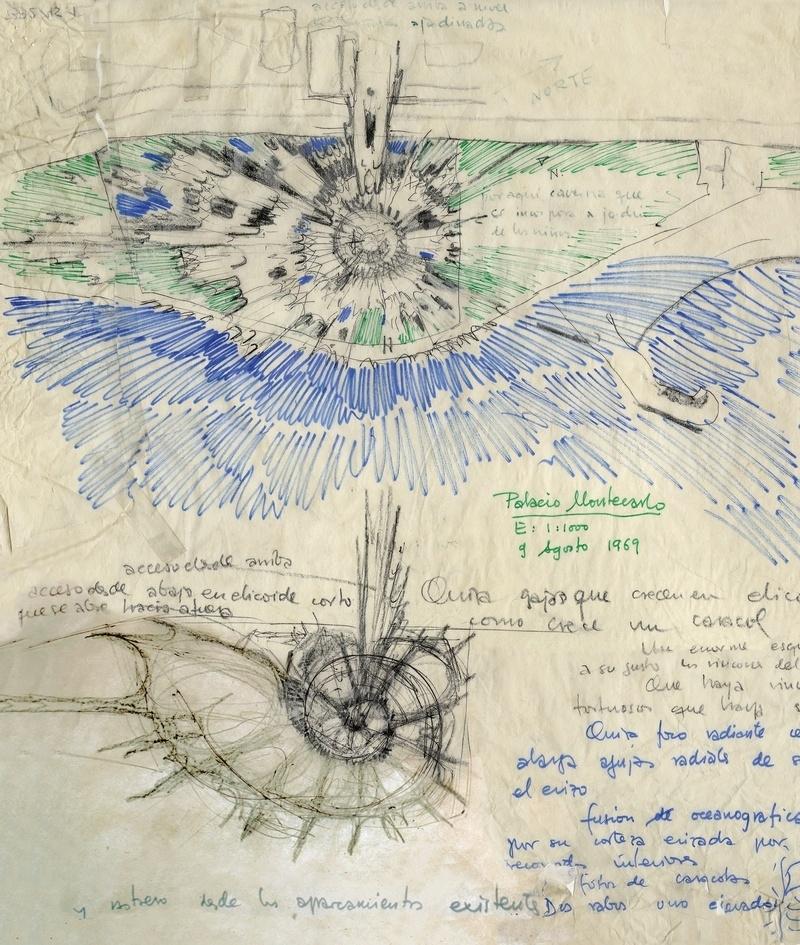 acceso desde arriba a nivel
ajardinadas
NORTE
N.
por aquí caverna que
se incorpora a jardin
de los niños
H
Palacio Montecarlo
E: 1:1000
9 Agosto 1969
acceso desde arriba
acceso desde abajo en elicoide corto
que se abre hacia afuera
Quizá gajos que crecen en elico
como crece un caracol
Un enorme esq
a su gusto los rincones del
Que haya rinc
tortuosos que haya s
Quizá foro radiante ce
alarga agujas radiales de s
el erizo
fusión de oceanografico
por su corteza erizada por
recorridos interiores
fotos de caracolas
y rastreo desde los aparcamientos existente
Dos rabos uno elevado